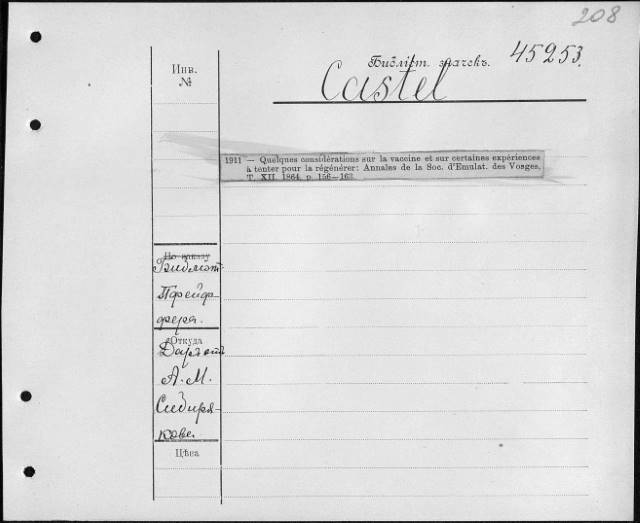 208
Библіот. значекъ. 45253.
Castel
Инв.
№
1911 — Quelques considérations sur la vaccine et sur certaines expériences
à tenter pour la régénérer: Annales de la Soc. d'Emulat. des Vosges,
T. XII. 1864. p. 156—163.
По заказу
Библіот.
Пфейф-
фера.
Откуда
Даръ отъ
А. М.
Сибиря-
кова.
Цѣна